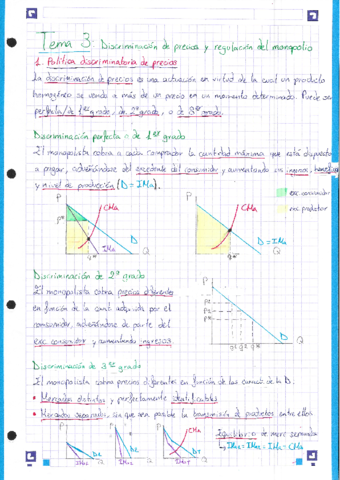 Tema 3: Discriminación de precios y regulación del monopolio
1. Política discriminatoria de precios
La discriminación de precios es una actuación en virtud de la cual un producto
homogéneo se vende a más de un precio en un momento determinado. Puede ser
perfecta/de 1er grado, de 2º grado, o de 3er grado.
Discriminación perfecta o de 1er grado
El monopolista cobra a cada comprador la cantidad máxima que está dispuesto
a pagar, adueñándose del excedente del consumidor y aumentando sus ingresos, beneficios
y nivel de producción (D = IMa).
exc consumidor
exc productor
P CMa
P*
D
q* IMa Q
P CMa
D = IMa
q* Q
Discriminación de 2º grado
El monopolista cobra precios diferentes
en función de la cant adquirida por el
consumidor, adueñándose de parte del
exc consumidor y aumentando ingresos
P
P1
P2
P*
D
q1 q2 q* Q
Discriminación de 3er grado
El monopolista cobra precios diferentes en función de las caract de la D.
• Mercados distintos y perfectamente identificables
• Mercados separados, sin que sea posible la transmisión de productos entre ellos
P
D1
IMa1
P
D2
IMa2
P CMa
DT
IMaT
Equilibrio de merc separados
IMa1 = IMa2 = IMa = CMa